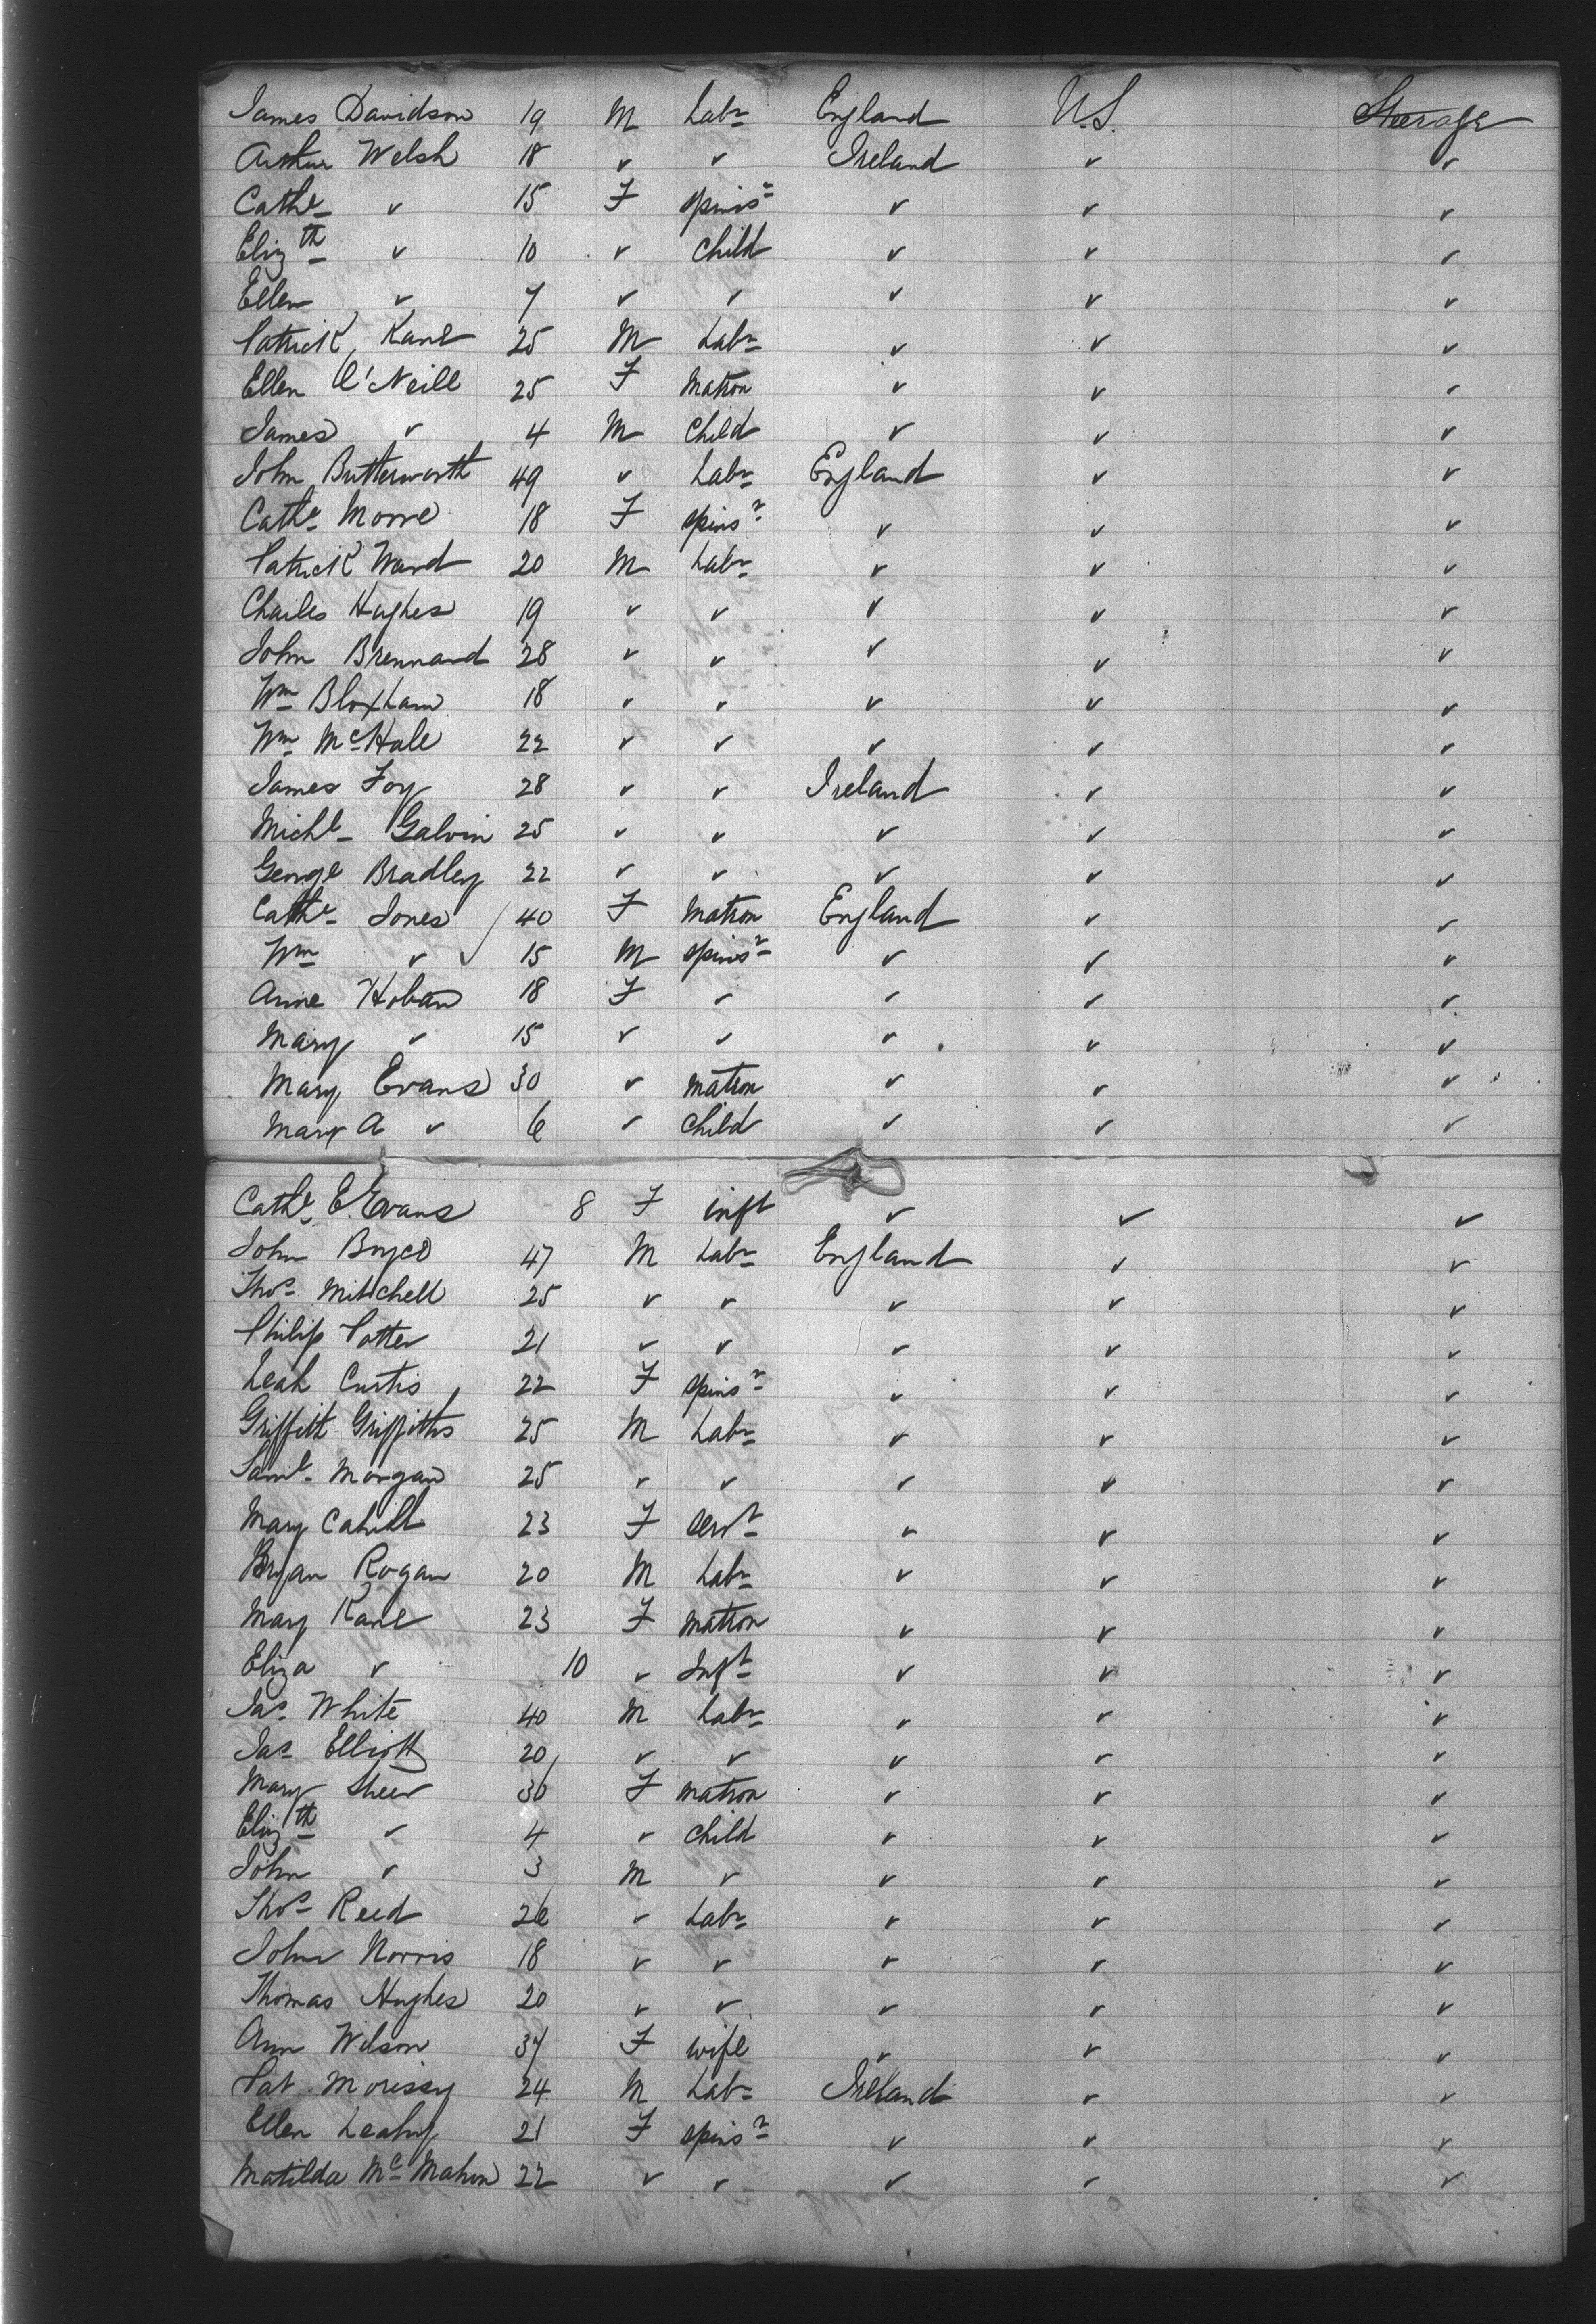 James Davidson 19 M Labr England U.S. Steerage
Arthur Welsh 18 " " Ireland " "
Cathe " 15 F spinsr " " "
Elizth " 10 " Child " " "
Ellen " 7 " " " " "
Patrick Kane 25 M Labr " " "
Ellen O'Neill 25 F Matron " " "
James " 4 M Child " " "
John Butterworth 49 " Labr England " "
Cathe Morre 18 F spinsr " " "
Patrick Ward 20 M Labr " " "
Charles Hughes 19 " " " " "
John Brennand 28 " " " " "
Wm Bloxham 18 " " " " "
Wm McHale 22 " " " " "
James Foy 28 " " Ireland " "
Michl Galvin 25 " " " " "
George Bradley 22 " " " " "
Cathe Jones 40 F Matron England " "
Wm " 15 M spinsr " " "
Anne Hoban 18 F " " " "
Mary " 15 " " " " "
Mary Evans 30 " matron " " "
Mary A " 6 " Child " " "
Cathe E. Evans 8 F inft " " "
John Boyce 47 M Labr England " "
Thos Mitchell 25 " " " " "
Philip Potter 21 " " " " "
Leah Curtis 22 F spinsr " " "
Griffith Griffiths 25 M Labr " " "
Saml Morgan 25 " " " " "
Mary Cahill 23 F servt " " "
Bryan Rogan 20 M Labr " " "
Mary Kane 23 F matron " " "
Eliza " 10 " Inft " " "
Jas White 40 M Labr " " "
Jas Elliott 20 " " " " "
Mary Sheer 36 F matron " " "
Elizth " 4 " child " " "
John " 3 M " " " "
Thos Reed 26 " Labr " " "
John Norris 18 " " " " "
Thomas Hughes 20 " " " " "
Ann Wilson 37 F wife " " "
Pat Morissy 24 M Labr Ireland " "
Ellen Leahy 21 F spinsr " " "
Matilda McMahon 22 " " " " "